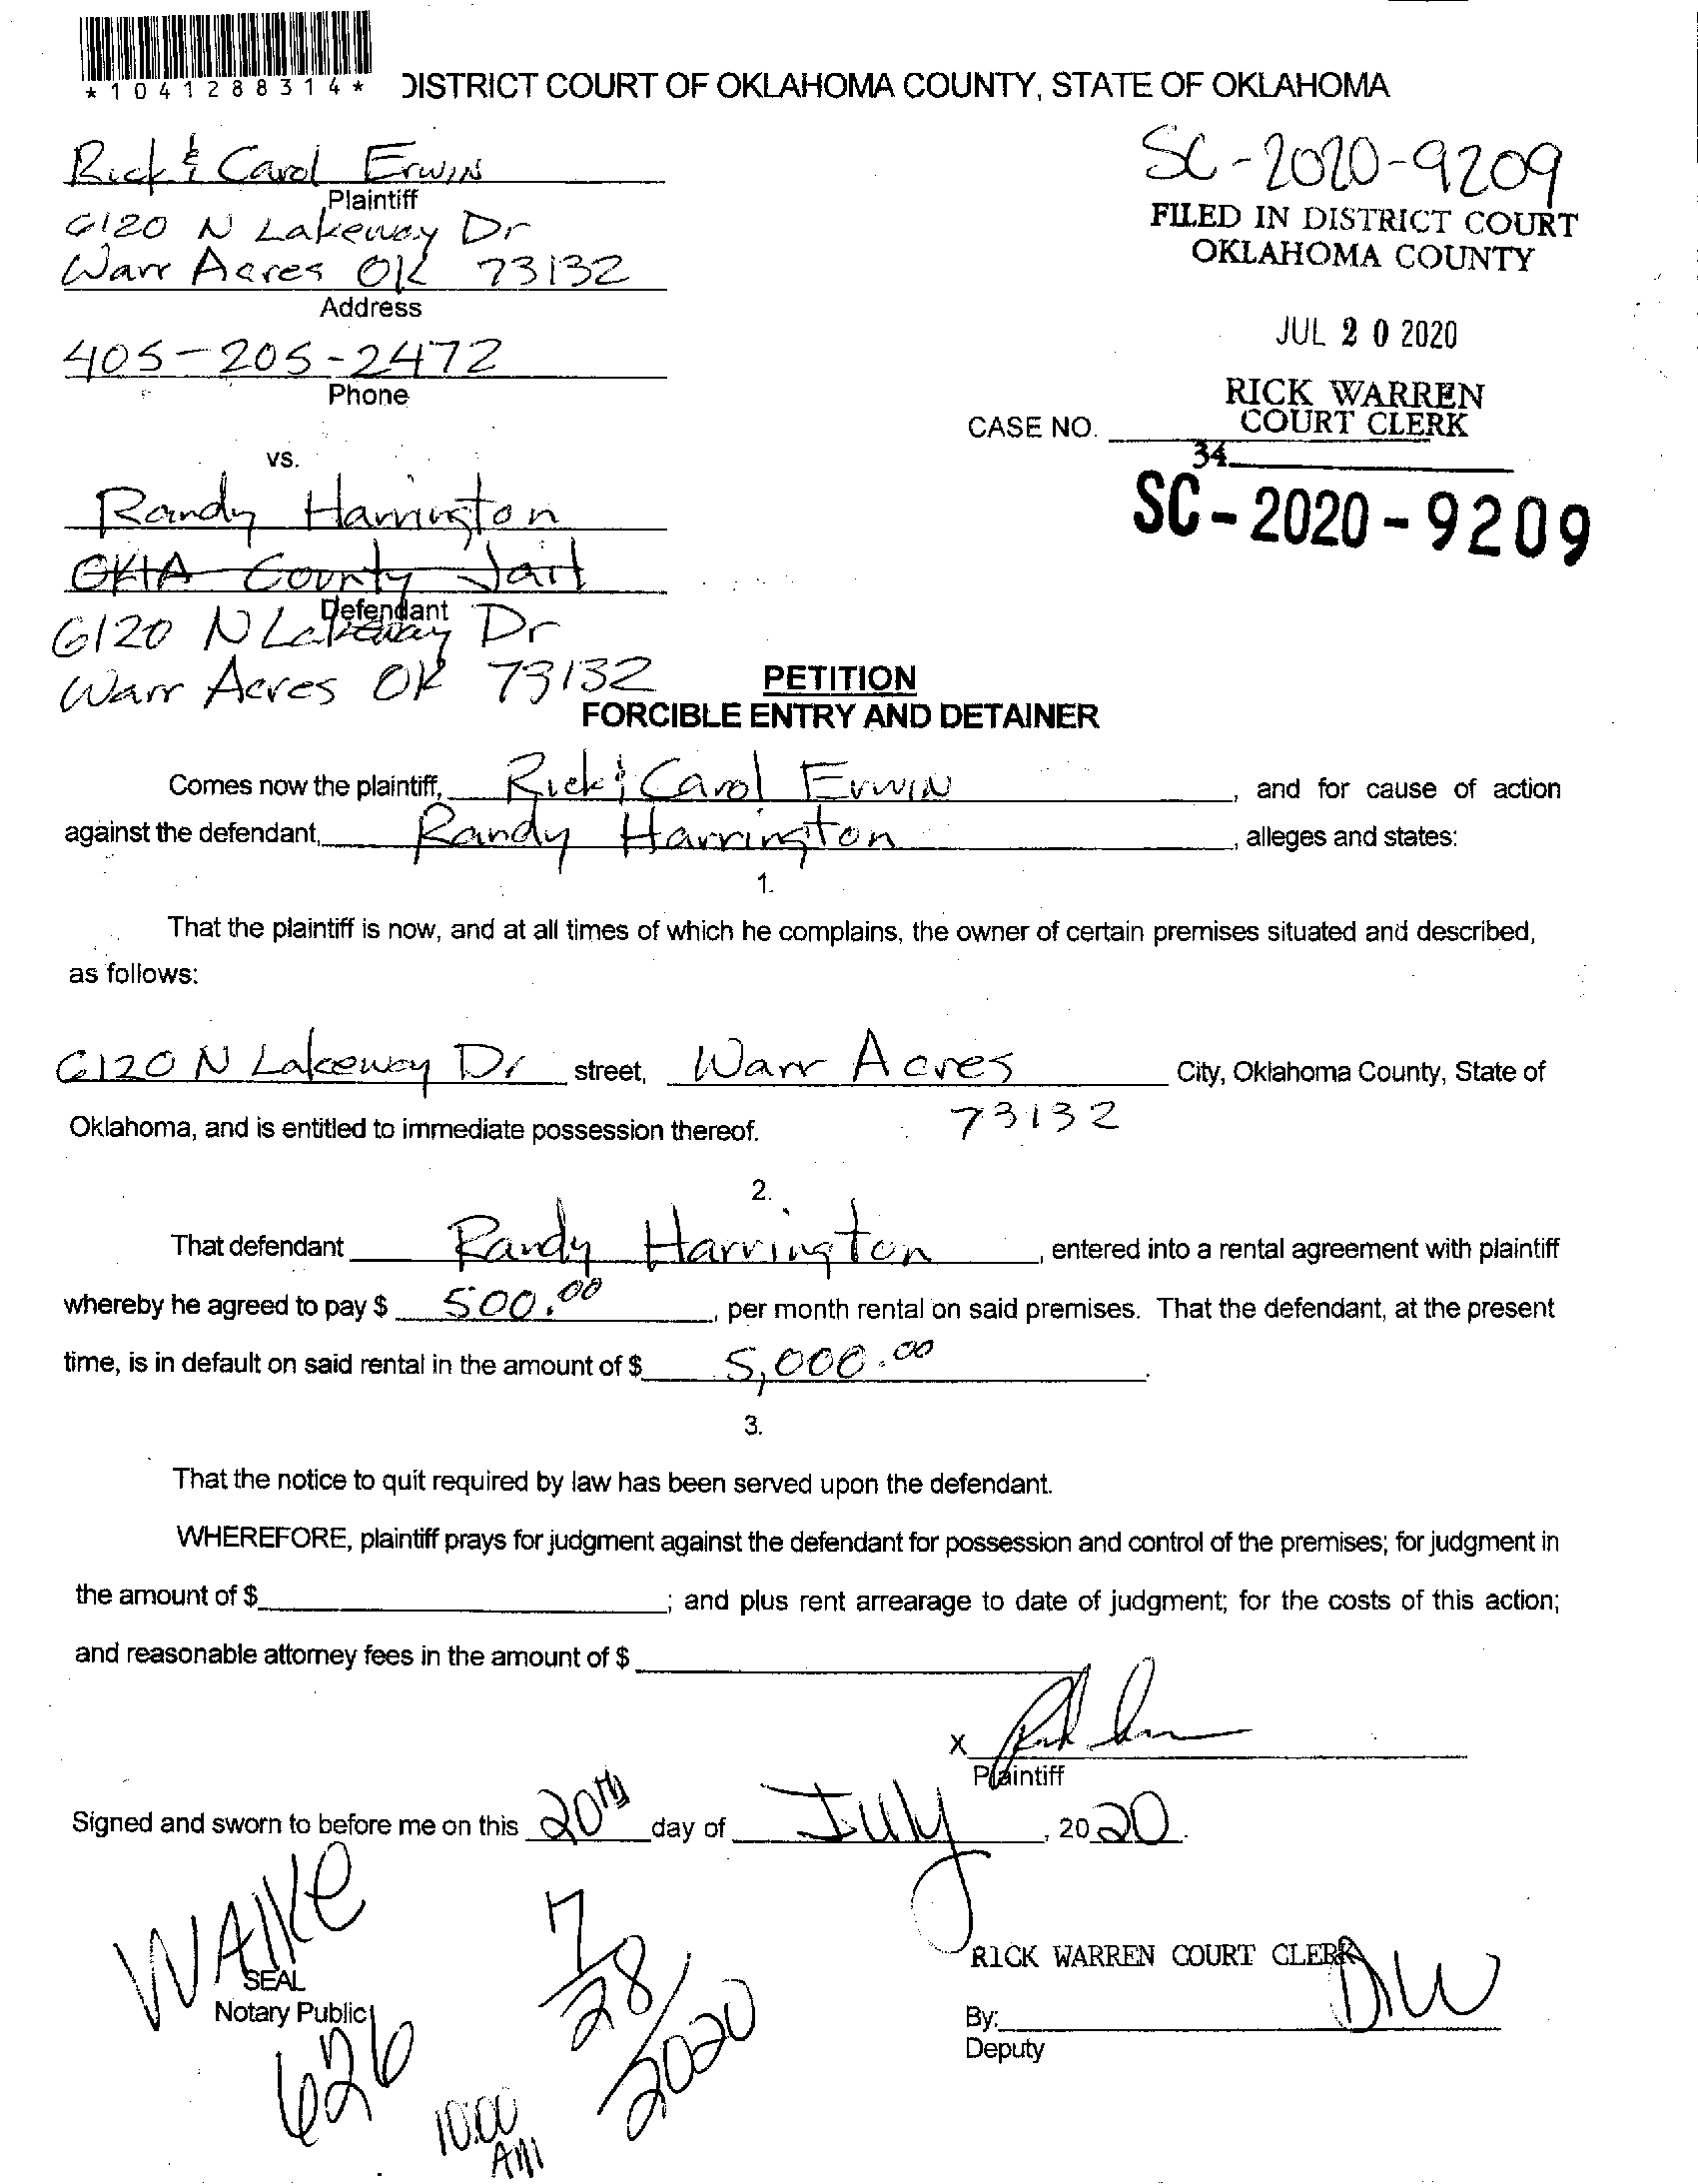 *1041288314*
DISTRICT COURT OF OKLAHOMA COUNTY, STATE OF OKLAHOMA
Rick & Carol Erwin
Plaintiff
6120 N Lakeway Dr
Warr Acres OK 73132
Address
405-205-2472
Phone
SC-2020-9209
FILED IN DISTRICT COURT
OKLAHOMA COUNTY
JUL 20 2020
RICK WARREN
COURT CLERK
CASE NO.
34
SC-2020-9209
vs.
Randy Harrington
OKLA County Jail
Defendant
6120 N Lakeway Dr
Warr Acres OK 73132
PETITION
FORCIBLE ENTRY AND DETAINER
Comes now the plaintiff, Rick & Carol Erwin, and for cause of action
against the defendant, Randy Harrington, alleges and states:
1.
That the plaintiff is now, and at all times of which he complains, the owner of certain premises situated and described,
as follows:
6120 N Lakeway Dr street, Warr Acres City, Oklahoma County, State of
Oklahoma, and is entitled to immediate possession thereof. 73132
2.
That defendant Randy Harrington, entered into a rental agreement with plaintiff
whereby he agreed to pay $ 500.00, per month rental on said premises. That the defendant, at the present
time, is in default on said rental in the amount of $ 5,000.00.
3.
That the notice to quit required by law has been served upon the defendant.
WHEREFORE, plaintiff prays for judgment against the defendant for possession and control of the premises; for judgment in
the amount of $ ; and plus rent arrearage to date of judgment; for the costs of this action;
and reasonable attorney fees in the amount of $
X
Plaintiff
Signed and sworn to before me on this 20th day of July, 2020.
WALKE
SEAL
Notary Public
626
7/28/2020
10:00
AM
RICK WARREN COURT CLERK
By: DW
Deputy